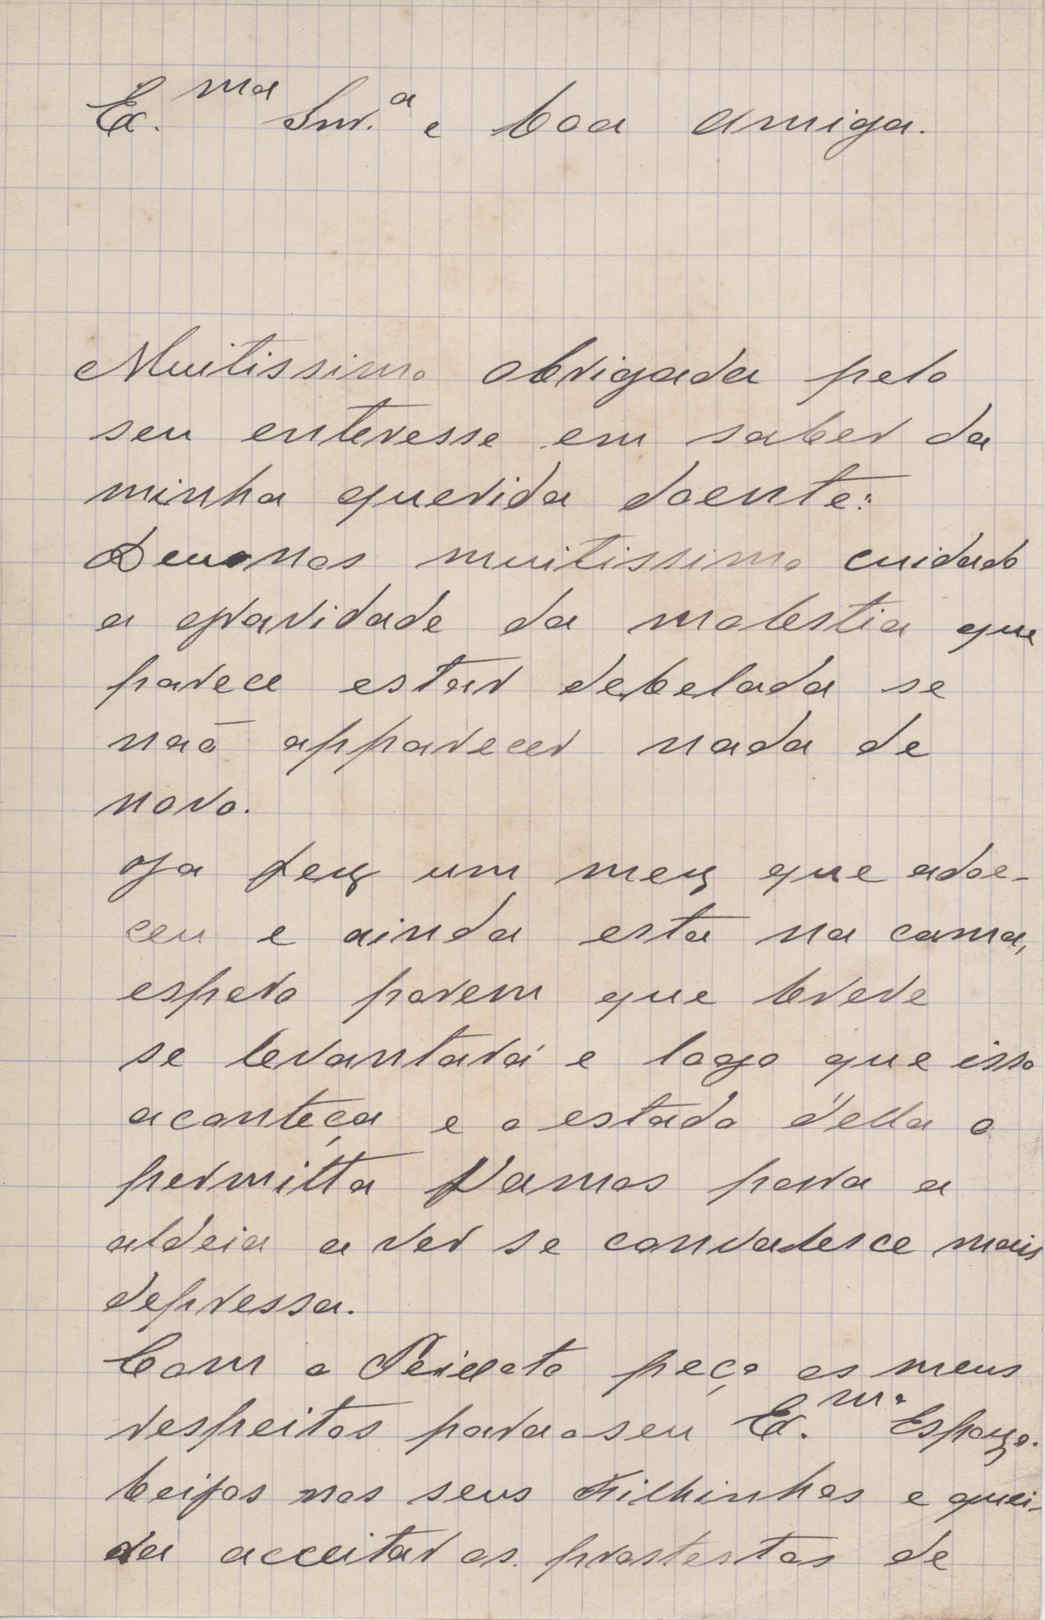 Ex.ma Snr.a e boa amiga.
Muitissimo obrigada pelo
seu enteresse em saber da
minha querida doente:
Deu-nos muitissimo cuidado
a gravidade da molestia que
parece estar debelada se
naõ apparecer nada de
novo.
Ja fez um mez que adoe-
ceu e ainda esta na cama,
espero porem que breve
se levantará e logo que isso
aconteça e o estado d'ella o
permitta vamos para a
aldeia a ver se convalesce mais
depressa.
Com o Peixoto peço os meus
respeitos para o seu Ex.mo Espozo.
beijos nos seus Filhinhos e quei-
ra acceitar os protestos de